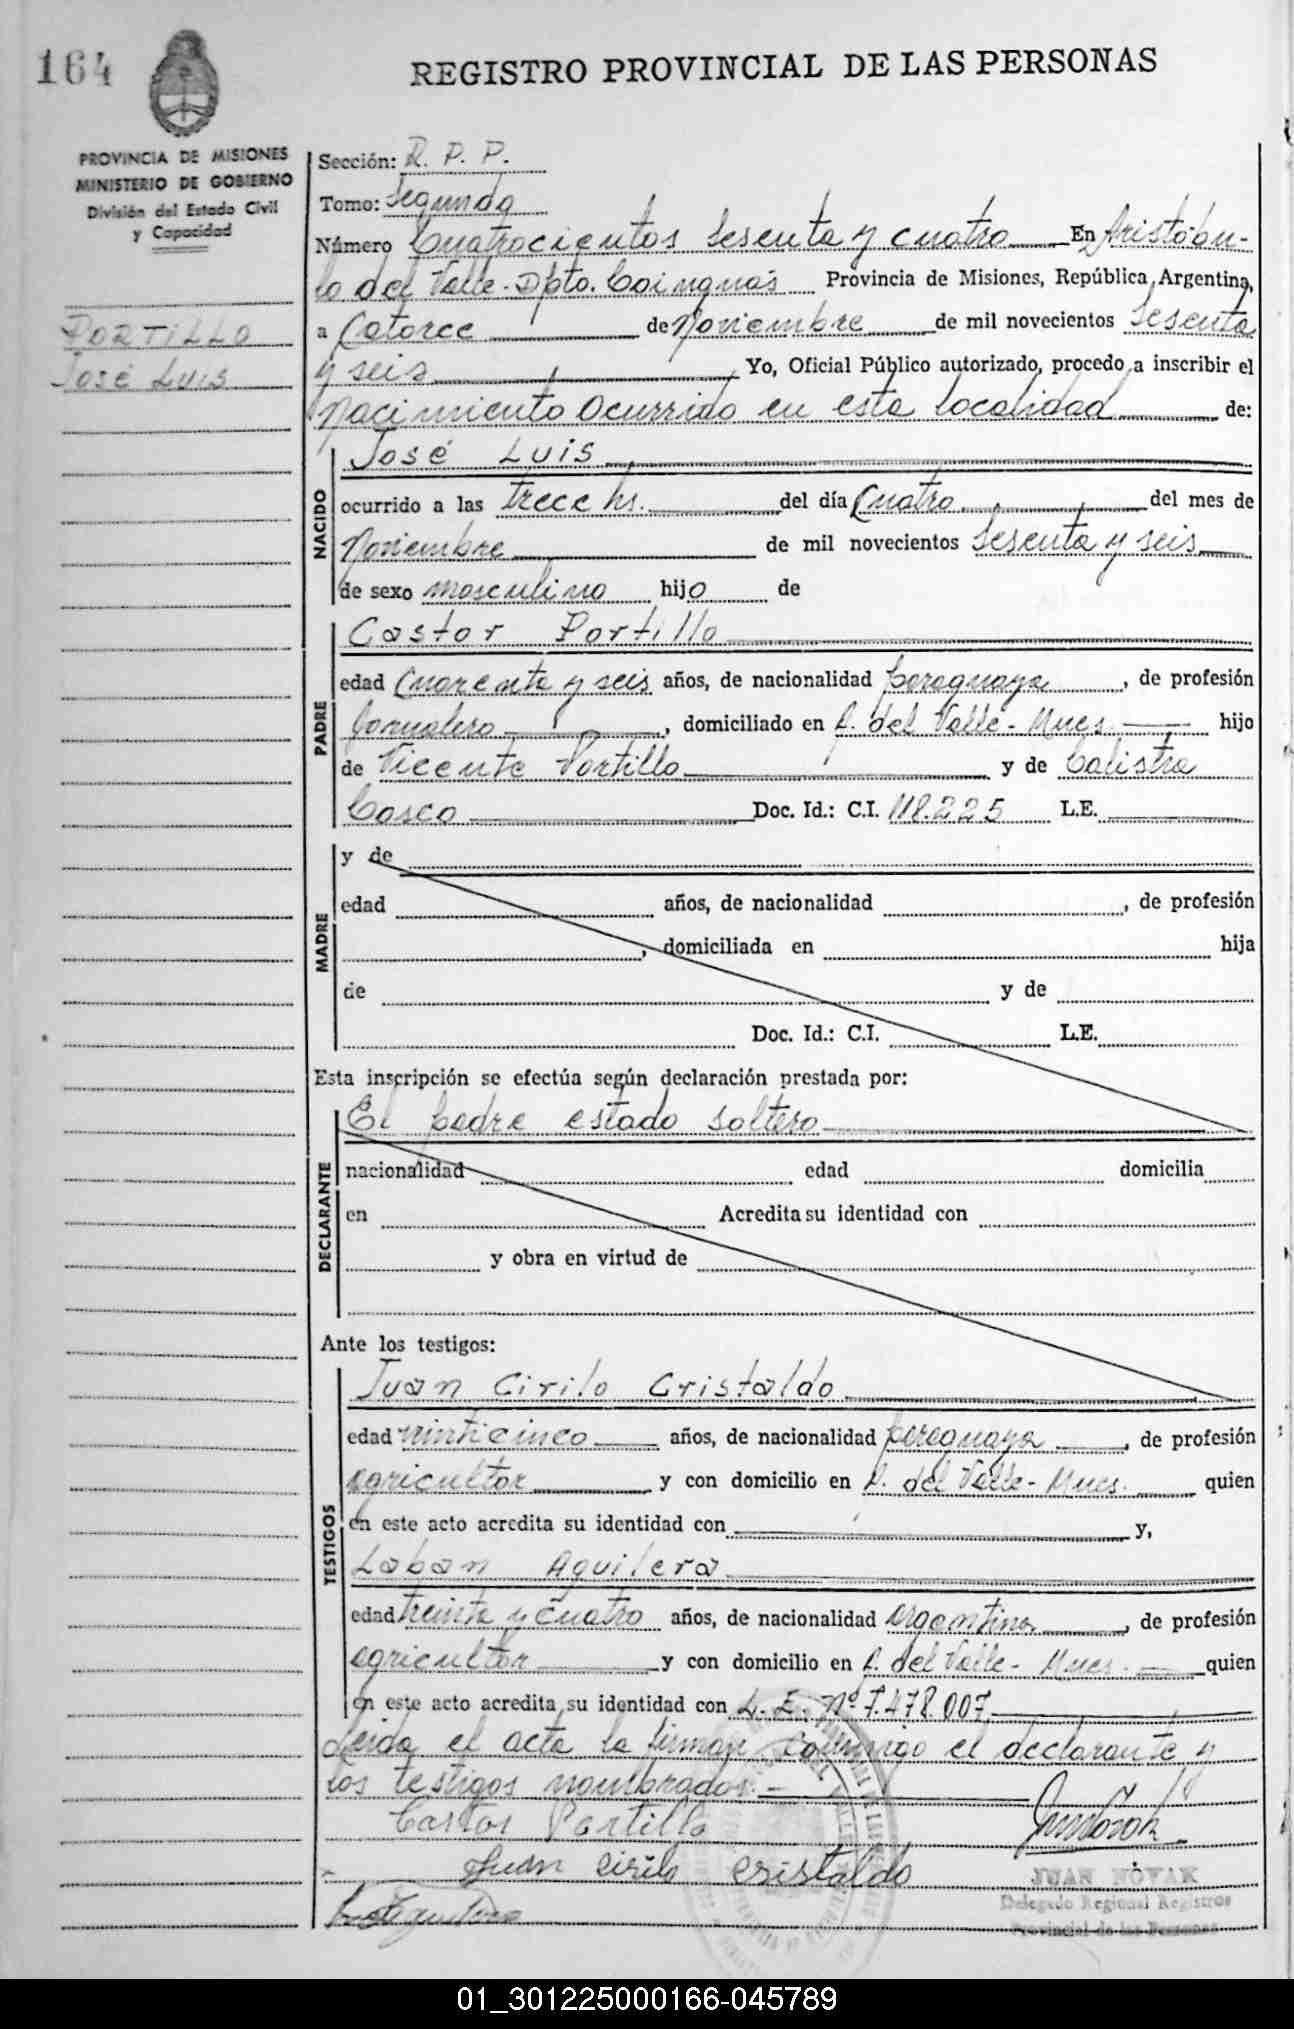 164
REGISTRO PROVINCIAL DE LAS PERSONAS
PROVINCIA DE MISIONES
MINISTERIO DE GOBIERNO
División del Estado Civil
y Capacidad
PORTILLO
José Luis
Sección: R. P. P.
Tomo: Segundo
Número Cuatrocientos sesenta y cuatro En Aristóbu-
lo del Valle - Dpto. Cainguás Provincia de Misiones, República Argentina,
a Catorce de Noviembre de mil novecientos sesenta
y seis Yo, Oficial Público autorizado, procedo a inscribir el
Nacimiento ocurrido en esta localidad de:
NACIDO
José Luis
ocurrido a las trece hs. del día Cuatro del mes de
Noviembre de mil novecientos sesenta y seis
de sexo masculino hijo de
PADRE
Castor Portillo
edad Cuarenta y seis años, de nacionalidad paraguaya, de profesión
jornalero, domiciliado en A. del Valle - Mnes. hijo
de Vicente Portillo y de Calistra
Casco Doc. Id.: C.I. 118.225 L.E.
MADRE
y de
edad años, de nacionalidad , de profesión
, domiciliada en hija
de y de
Doc. Id.: C.I. L.E.
Esta inscripción se efectúa según declaración prestada por:
DECLARANTE
El padre estado soltero
nacionalidad edad domicilia
en Acredita su identidad con
y obra en virtud de
Ante los testigos:
TESTIGOS
Juan Cirilo Cristaldo
edad vinticinco años, de nacionalidad paraguaya, de profesión
agricultor y con domicilio en A. del Valle - Mnes. quien
en este acto acredita su identidad con y,
Laban Aguilera
edad treinta y cuatro años, de nacionalidad argentina, de profesión
agricultor y con domicilio en A. del Valle - Mnes. quien
en este acto acredita su identidad con L. E. Nº 7.478.007
Leída el acta la firman conmigo el declarante y
los testigos nombrados. -
Castor Portillo
Juan Cirilo Cristaldo
JUAN NOVAK
Delegado Regional Registros
Provincial de las Personas
01_301225000166-045789